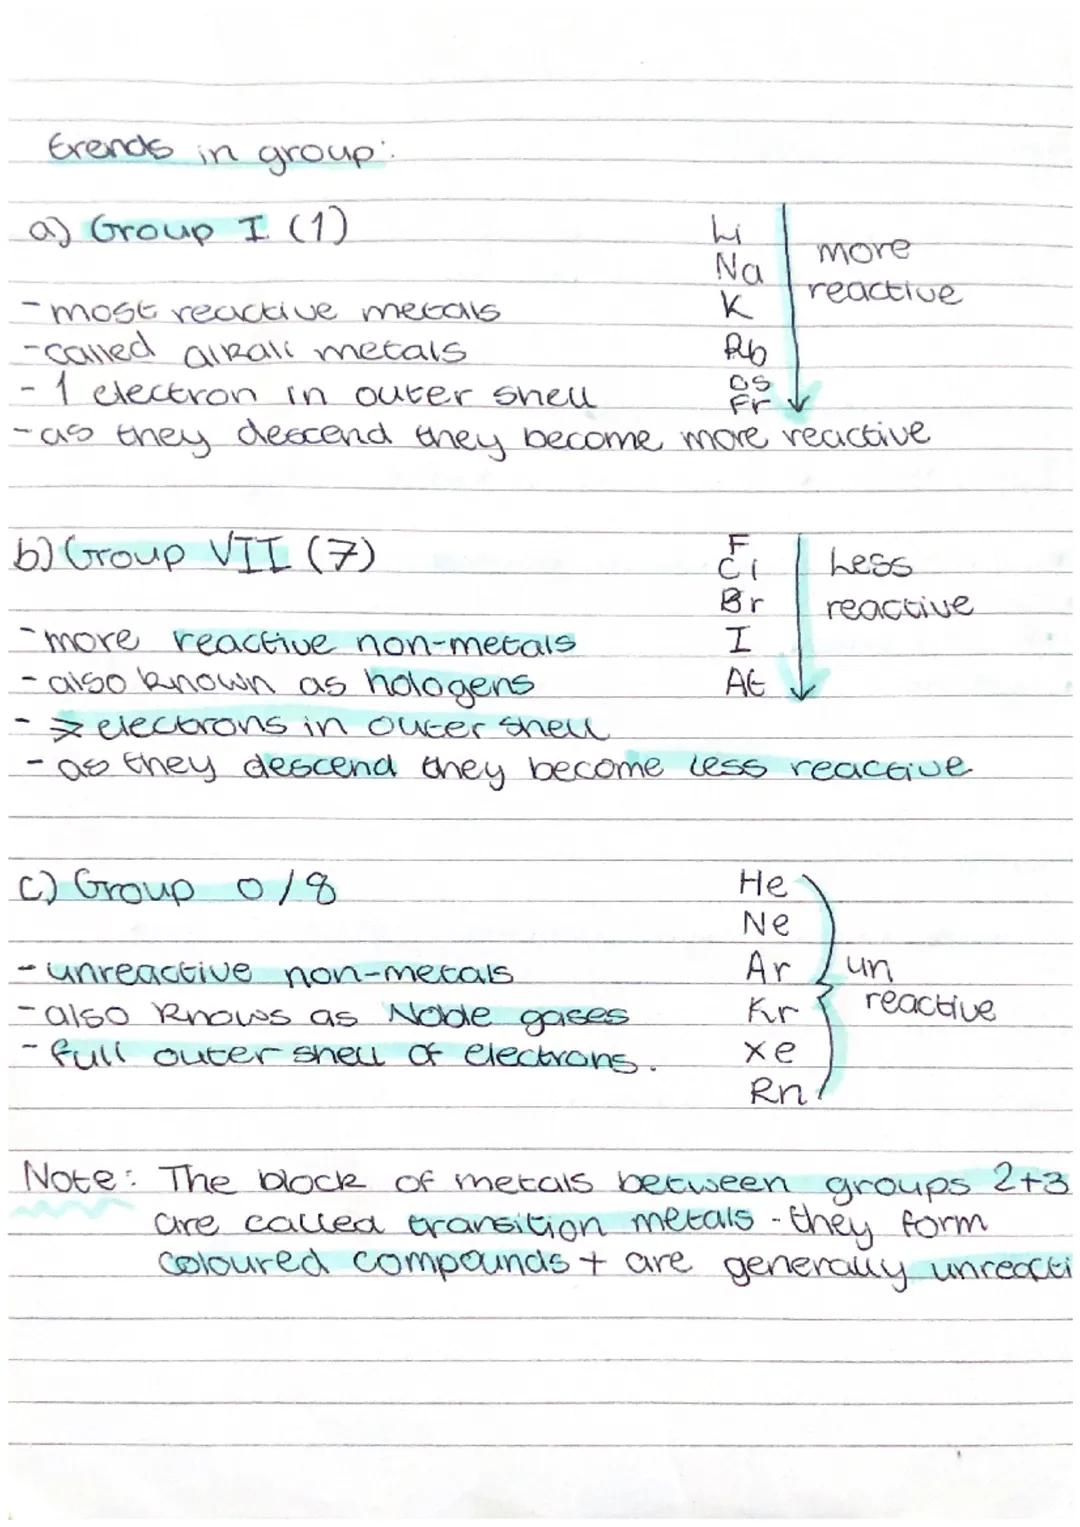 trends in group:
a) Group I (1)
Li
Na
K
Rb
Cs
Fr
more
reactive
- most reactive metals
- called alkali metals
- 1 electron in outer shell
- as they descend they become more reactive
b) Group VII (7)
F
Cl
Br
I
At
Less
reactive
- more reactive non-metals
- also known as halogens
- 7 electrons in outer shell
- as they descend they become less reactive
c) Group 0/8
He
Ne
Ar
Kr
Xe
Rn
un
reactive
- unreactive non-metals
- also knows as Noble gases
- full outer shell of electrons.
Note: The block of metals between groups 2+3
are called transition metals - they form
coloured compounds + are generally unreacti